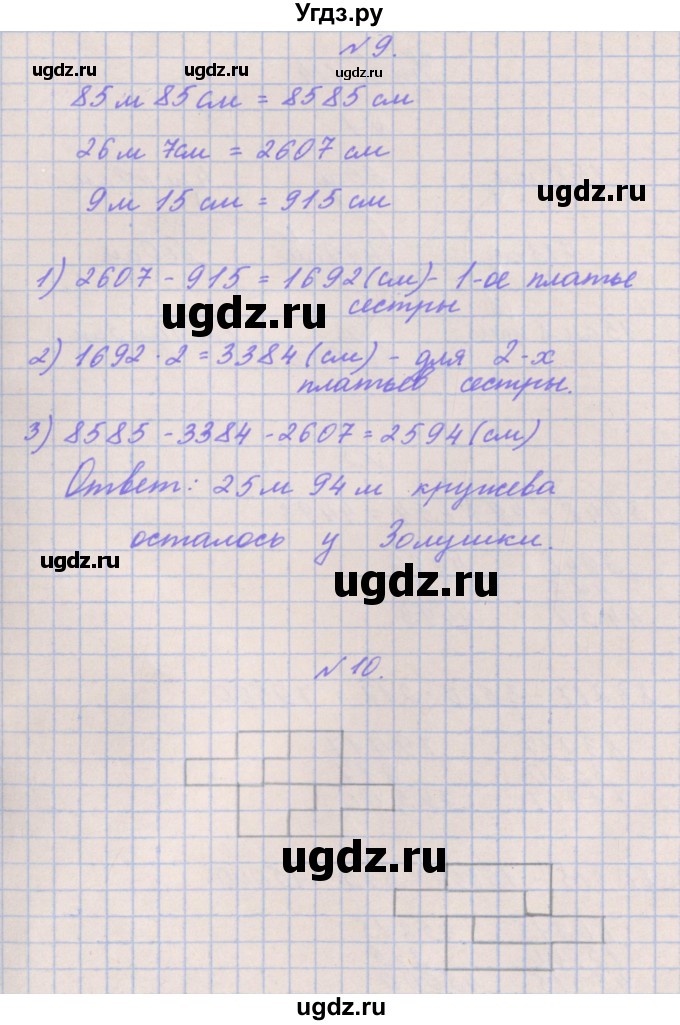 Угдз.ру
№9.
ugdz.ru ugdz.ru ugdz.ru
85 м 85 см = 8585 см
26 м 7см = 2607 см
ugdz.ru
9 м 15 см = 915 см
1) 2607 - 915 = 1692 (см)- 1-ое платье
сестры
ugdz.ru
2) 1692 · 2 = 3384 (см) - для 2-х
платьев сестры.
3) 8585 - 3384 - 2607 = 2594 (см)
Ответ: 25 м 94 м кружева
осталось у Золушки.
ugdz.ru
ugdz.ru
№10.
ugdz.ru
ugdz.ru